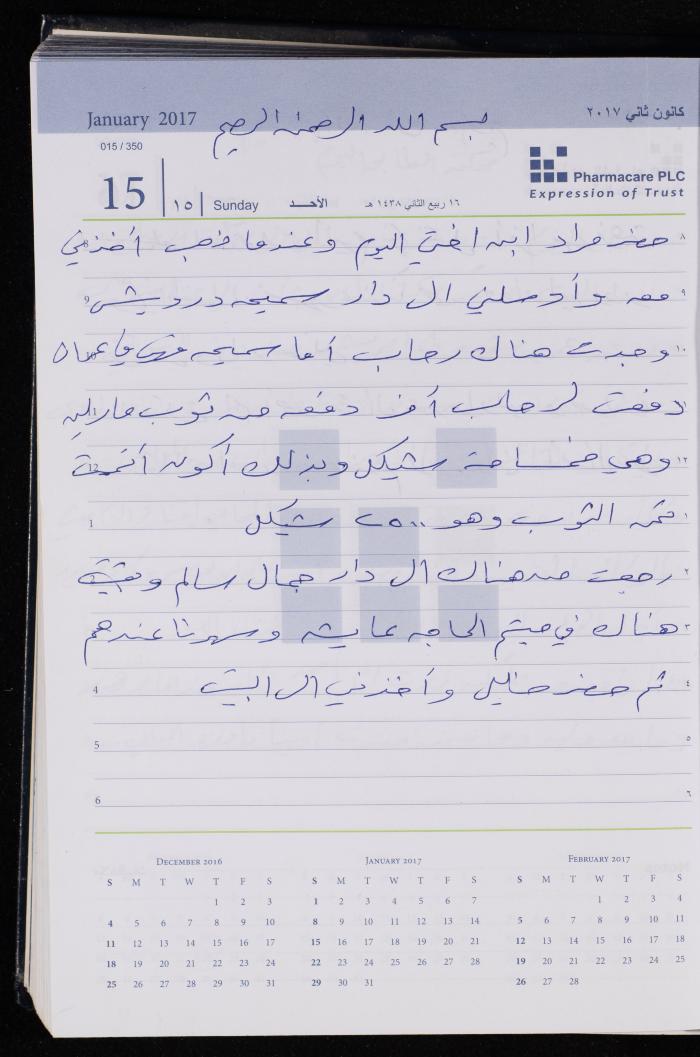 January 2017
كانون ثاني ٢٠١٧
بسم الله الرحمن الرحيم
015 / 350
15
١٥
Sunday
الأحـــد
١٦ ربيع الثاني ١٤٣٨ هـ
Pharmacare PLC
Expression of Trust
٨ حضر مراد ابن اختي اليوم وعندما ذهب أخذني 8
٩ معه وأوصلني ال دار سميحه درويش 9
١٠ وجدت هناك رحاب أما سميحه في عمان 10
١١ دفعت لرحاب آخر دفعه من ثوب مارلين 11
١٢ وهي خمسمائة شيكل وبذلك أكون أتممت 12
١ ثمن الثوب وهو ٢٥٠٠ شيكل 1
٢ رجعت من هناك ال دار جمال سالم وبقيت
٣ هناك في ميتم الحاجه عايشه وسهرنا عندهم
٤ ثم حضر خليل وأخذني ال البيت 4
٥ 5
٦ 6
December 2016
S M T W T F S
1 2 3
4 5 6 7 8 9 10
11 12 13 14 15 16 17
18 19 20 21 22 23 24
25 26 27 28 29 30 31
January 2017
S M T W T F S
1 2 3 4 5 6 7
8 9 10 11 12 13 14
15 16 17 18 19 20 21
22 23 24 25 26 27 28
29 30 31
February 2017
S M T W T F S
1 2 3 4
5 6 7 8 9 10 11
12 13 14 15 16 17 18
19 20 21 22 23 24 25
26 27 28